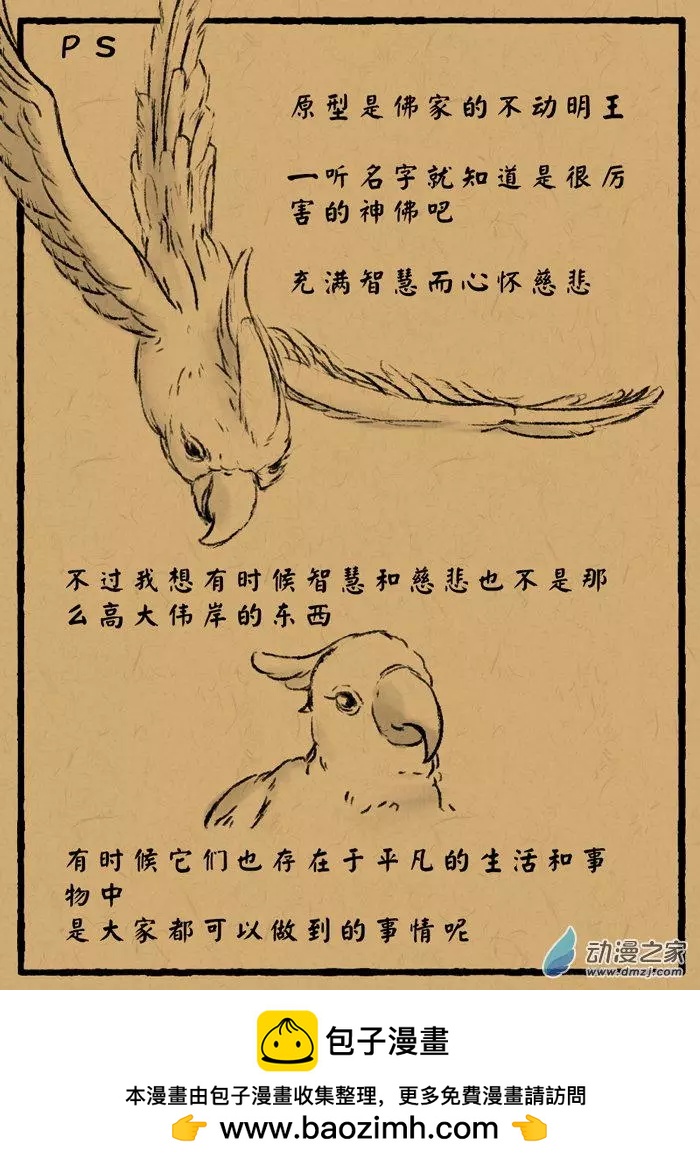 PS
原型是佛家的不动明王
一听名字就知道是很厉
害的神佛吧
充满智慧而心怀慈悲
不过我想有时候智慧和慈悲也不是那
么高大伟岸的东西
有时候它们也存在于平凡的生活和事
物中
是大家都可以做到的事情呢
动漫之家
www.dmzj.com
包子漫畫
本漫畫由包子漫畫收集整理，更多免費漫畫請訪問
www.baozimh.com